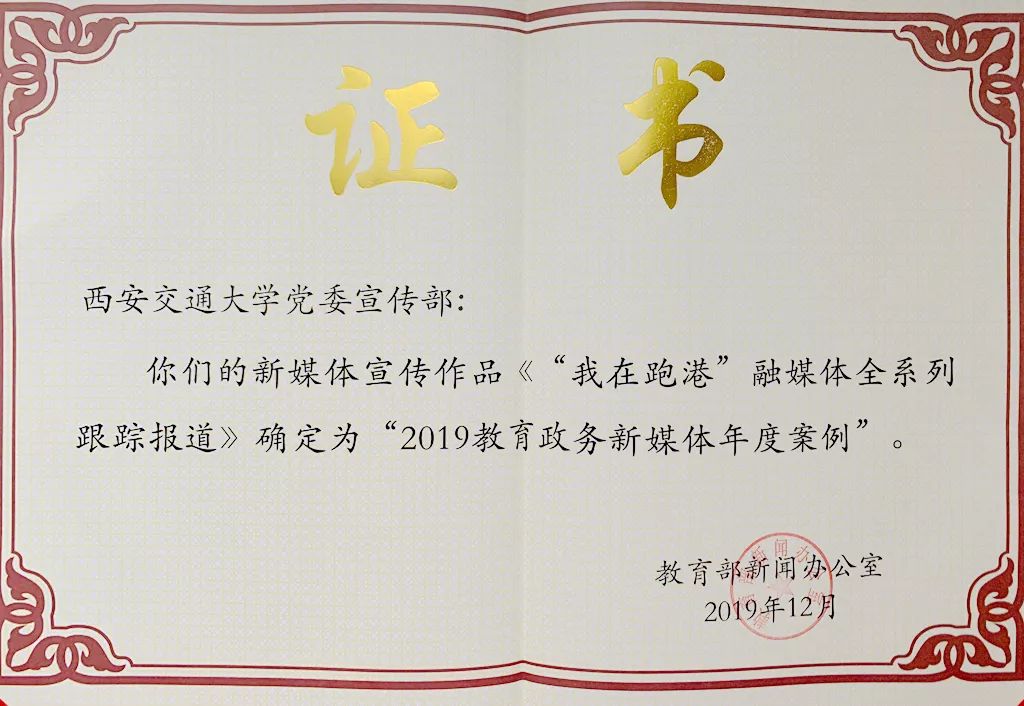 证书
西安交通大学党委宣传部:
你们的新媒体宣传作品《“我在跑港”融媒体全系列
跟踪报道》确定为“2019教育政务新媒体年度案例”。
教育部新闻办公室
2019年12月